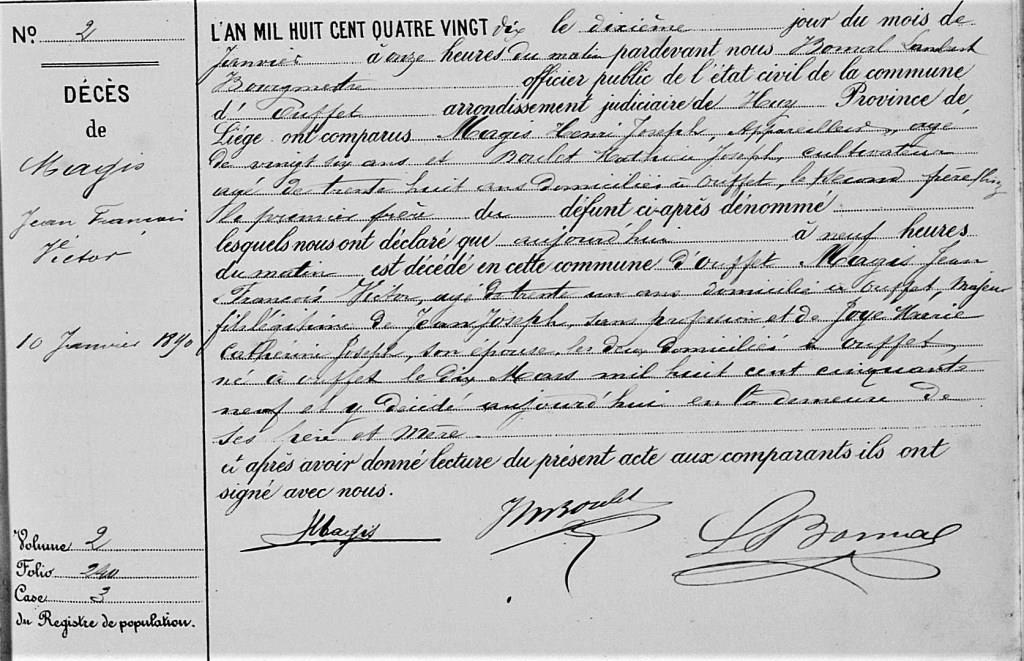 Nº 2
DÉCÈS
de
Magis
Jean François
Victor
10 Janvier 1890
Volume 2
Folio 240
Case 3
du Registre de population.
L'AN MIL HUIT CENT QUATRE VINGT dix le dixième jour du mois de
Janvier à onze heures du matin pardevant nous Bomal Lambert
Bourgmestre officier public de l'état civil de la commune
d' Ouffet arrondissement judiciaire de Huy Province de
Liége ont comparus Magis Henri Joseph, Appareilleur, agé
de vingt six ans et Boulet Mathieu Joseph, cultivateur
agé de trente huit ans domiciliés à Ouffet, le second
le premier frère du défunt ci-après dénommé
lesquels nous ont déclaré que aujourd'hui à neuf heures
du matin est décédé en cette commune d'Ouffet Magis Jean
François Victor, agé de trente un ans domicilié à Ouffet, Majeur
fils légitime de Jean Joseph, sans profession et de Joye Marie
Catherine Joseph, son épouse, les deux domiciliés à Ouffet,
né à Ouffet le dix Mars mil huit cent cinquante
neuf et y décédé aujourd'hui en la demeure de
ses père et Mère.
et après avoir donné lecture du présent acte aux comparants ils ont
signé avec nous.
HMagis JMBoulet LBomal